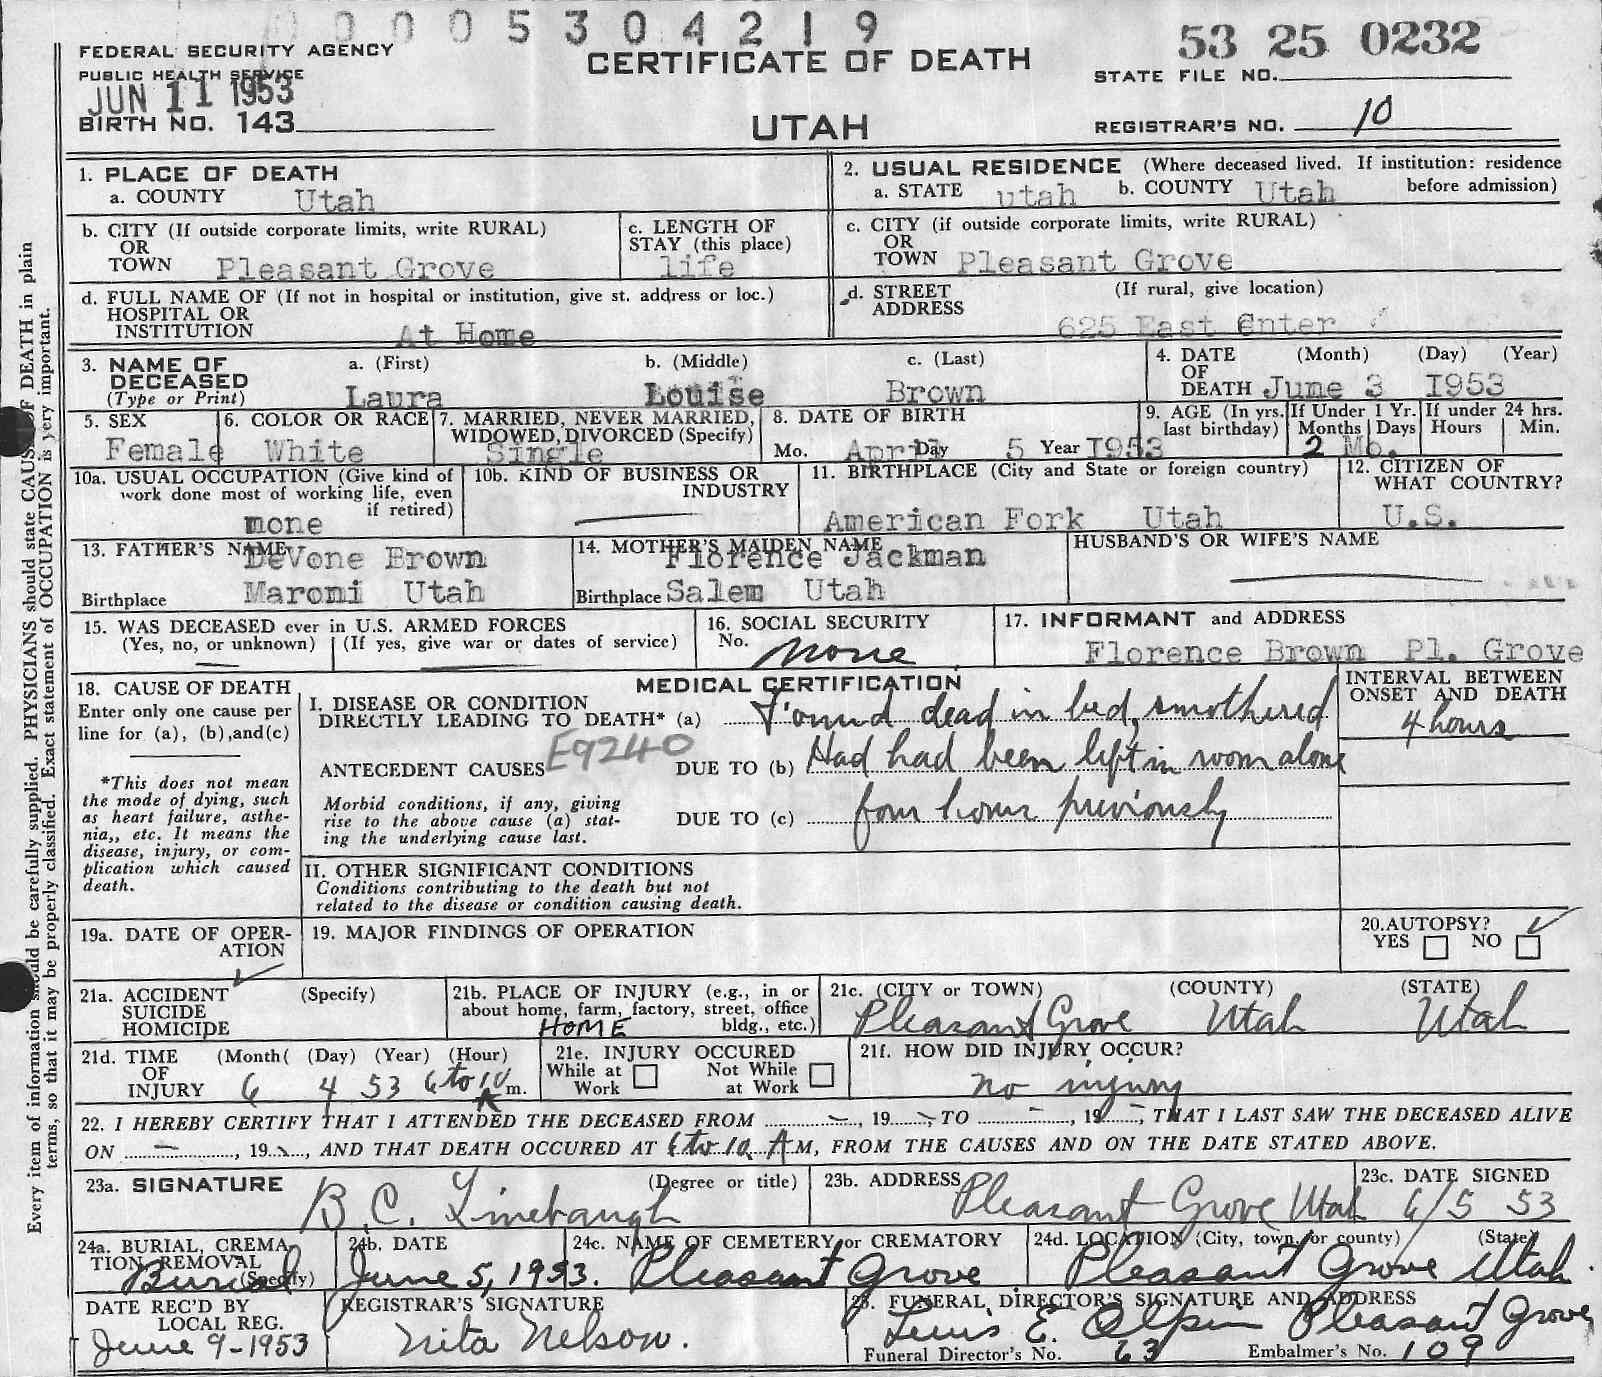 0 0 0 0 5 3 0 4 2 1 9
53 25 0232
FEDERAL SECURITY AGENCY
PUBLIC HEALTH SERVICE
JUN 11 1953
BIRTH NO. 143
CERTIFICATE OF DEATH
UTAH
STATE FILE NO.
REGISTRAR'S NO. 10
Every item of information should be carefully supplied. PHYSICIANS should state CAUSE OF DEATH in plain
terms, so that it may be properly classified. Exact statement of OCCUPATION is very important.
1. PLACE OF DEATH
a. COUNTY Utah
2. USUAL RESIDENCE (Where deceased lived. If institution: residence
before admission)
a. STATE utah b. COUNTY Utah
b. CITY (If outside corporate limits, write RURAL)
OR
TOWN Pleasant Grove
c. LENGTH OF
STAY (this place)
life
c. CITY (if outside corporate limits, write RURAL)
OR
TOWN Pleasant Grove
d. FULL NAME OF (If not in hospital or institution, give st. address or loc.)
HOSPITAL OR
INSTITUTION At Home
d. STREET (If rural, give location)
ADDRESS
625 East Center
3. NAME OF
DECEASED
(Type or Print)
a. (First) b. (Middle) c. (Last)
Laura Louise Brown
4. DATE (Month) (Day) (Year)
OF
DEATH June 3 1953
5. SEX
Female
6. COLOR OR RACE
White
7. MARRIED, NEVER MARRIED,
WIDOWED, DIVORCED (Specify)
Single
8. DATE OF BIRTH
Mo. April Day 5 Year 1953
9. AGE (In yrs. last birthday)
If Under 1 Yr.
Months Days
2 Mo.
If under 24 hrs.
Hours Min.
10a. USUAL OCCUPATION (Give kind of
work done most of working life, even
if retired)
mone
10b. KIND OF BUSINESS OR
INDUSTRY
11. BIRTHPLACE (City and State or foreign country)
American Fork Utah
12. CITIZEN OF
WHAT COUNTRY?
U.S.
13. FATHER'S NAME
DeVone Brown
Birthplace Maroni Utah
14. MOTHER'S MAIDEN NAME
Florence Jackman
Birthplace Salem Utah
HUSBAND'S OR WIFE'S NAME
15. WAS DECEASED ever in U.S. ARMED FORCES
(Yes, no, or unknown) (If yes, give war or dates of service)
16. SOCIAL SECURITY
No. none
17. INFORMANT and ADDRESS
Florence Brown Pl. Grove
18. CAUSE OF DEATH
Enter only one cause per
line for (a), (b), and (c)
*This does not mean
the mode of dying, such
as heart failure, asthe-
nia,, etc. It means the
disease, injury, or com-
plication which caused
death.
MEDICAL CERTIFICATION
I. DISEASE OR CONDITION
DIRECTLY LEADING TO DEATH* (a) Found dead in bed, smothered
E9240
ANTECEDENT CAUSES DUE TO (b) Had had been left in room alone
Morbid conditions, if any, giving
rise to the above cause (a) stat-
ing the underlying cause last.
DUE TO (c) four hours previously
INTERVAL BETWEEN
ONSET AND DEATH
4 hours
II. OTHER SIGNIFICANT CONDITIONS
Conditions contributing to the death but not
related to the disease or condition causing death.
19a. DATE OF OPER-
ATION
19. MAJOR FINDINGS OF OPERATION
20. AUTOPSY?
YES NO ✓
21a. ACCIDENT ✓ (Specify)
SUICIDE
HOMICIDE
21b. PLACE OF INJURY (e.g., in or
about home, farm, factory, street, office
bldg., etc.)
HOME
21c. (CITY or TOWN) (COUNTY) (STATE)
Pleasant Grove Utah Utah
21d. TIME (Month( (Day) (Year) (Hour)
OF
INJURY 6 4 53 6 to 10 A m.
21e. INJURY OCCURED
While at Work Not While at Work
21f. HOW DID INJURY OCCUR?
no injury
22. I HEREBY CERTIFY THAT I ATTENDED THE DECEASED FROM - , 19 - TO - , 19 - , THAT I LAST SAW THE DECEASED ALIVE
ON - , 19 - , AND THAT DEATH OCCURED AT 6 to 10 A M, FROM THE CAUSES AND ON THE DATE STATED ABOVE.
23a. SIGNATURE (Degree or title)
B. C. Linebaugh
23b. ADDRESS Pleasant Grove Utah
23c. DATE SIGNED
6/5 53
24a. BURIAL, CREMA-
TION, REMOVAL
(Specify)
Burial
24b. DATE
June 5, 1953.
24c. NAME OF CEMETERY or CREMATORY
Pleasant Grove
24d. LOCATION (City, town, or county) (State)
Pleasant Grove Utah.
DATE REC'D BY
LOCAL REG.
June 9-1953
REGISTRAR'S SIGNATURE
Nita Nelson.
25. FUNERAL DIRECTOR'S SIGNATURE AND ADDRESS
Lewis E. Olpin Pleasant Grove
Funeral Director's No. 63 Embalmer's No. 109